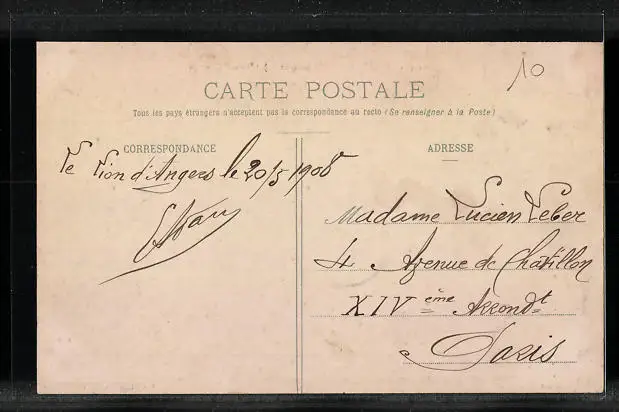 10
CARTE POSTALE
Tous les pays étrangers n'acceptent pas la correspondance au recto (Se renseigner à la Poste)
CORRESPONDANCE
ADRESSE
Le Lion d'Angers le 20/5 1908
Madame Lucien Leber
4 Avenue de Chatillon
XIV ème Arrondt
Paris